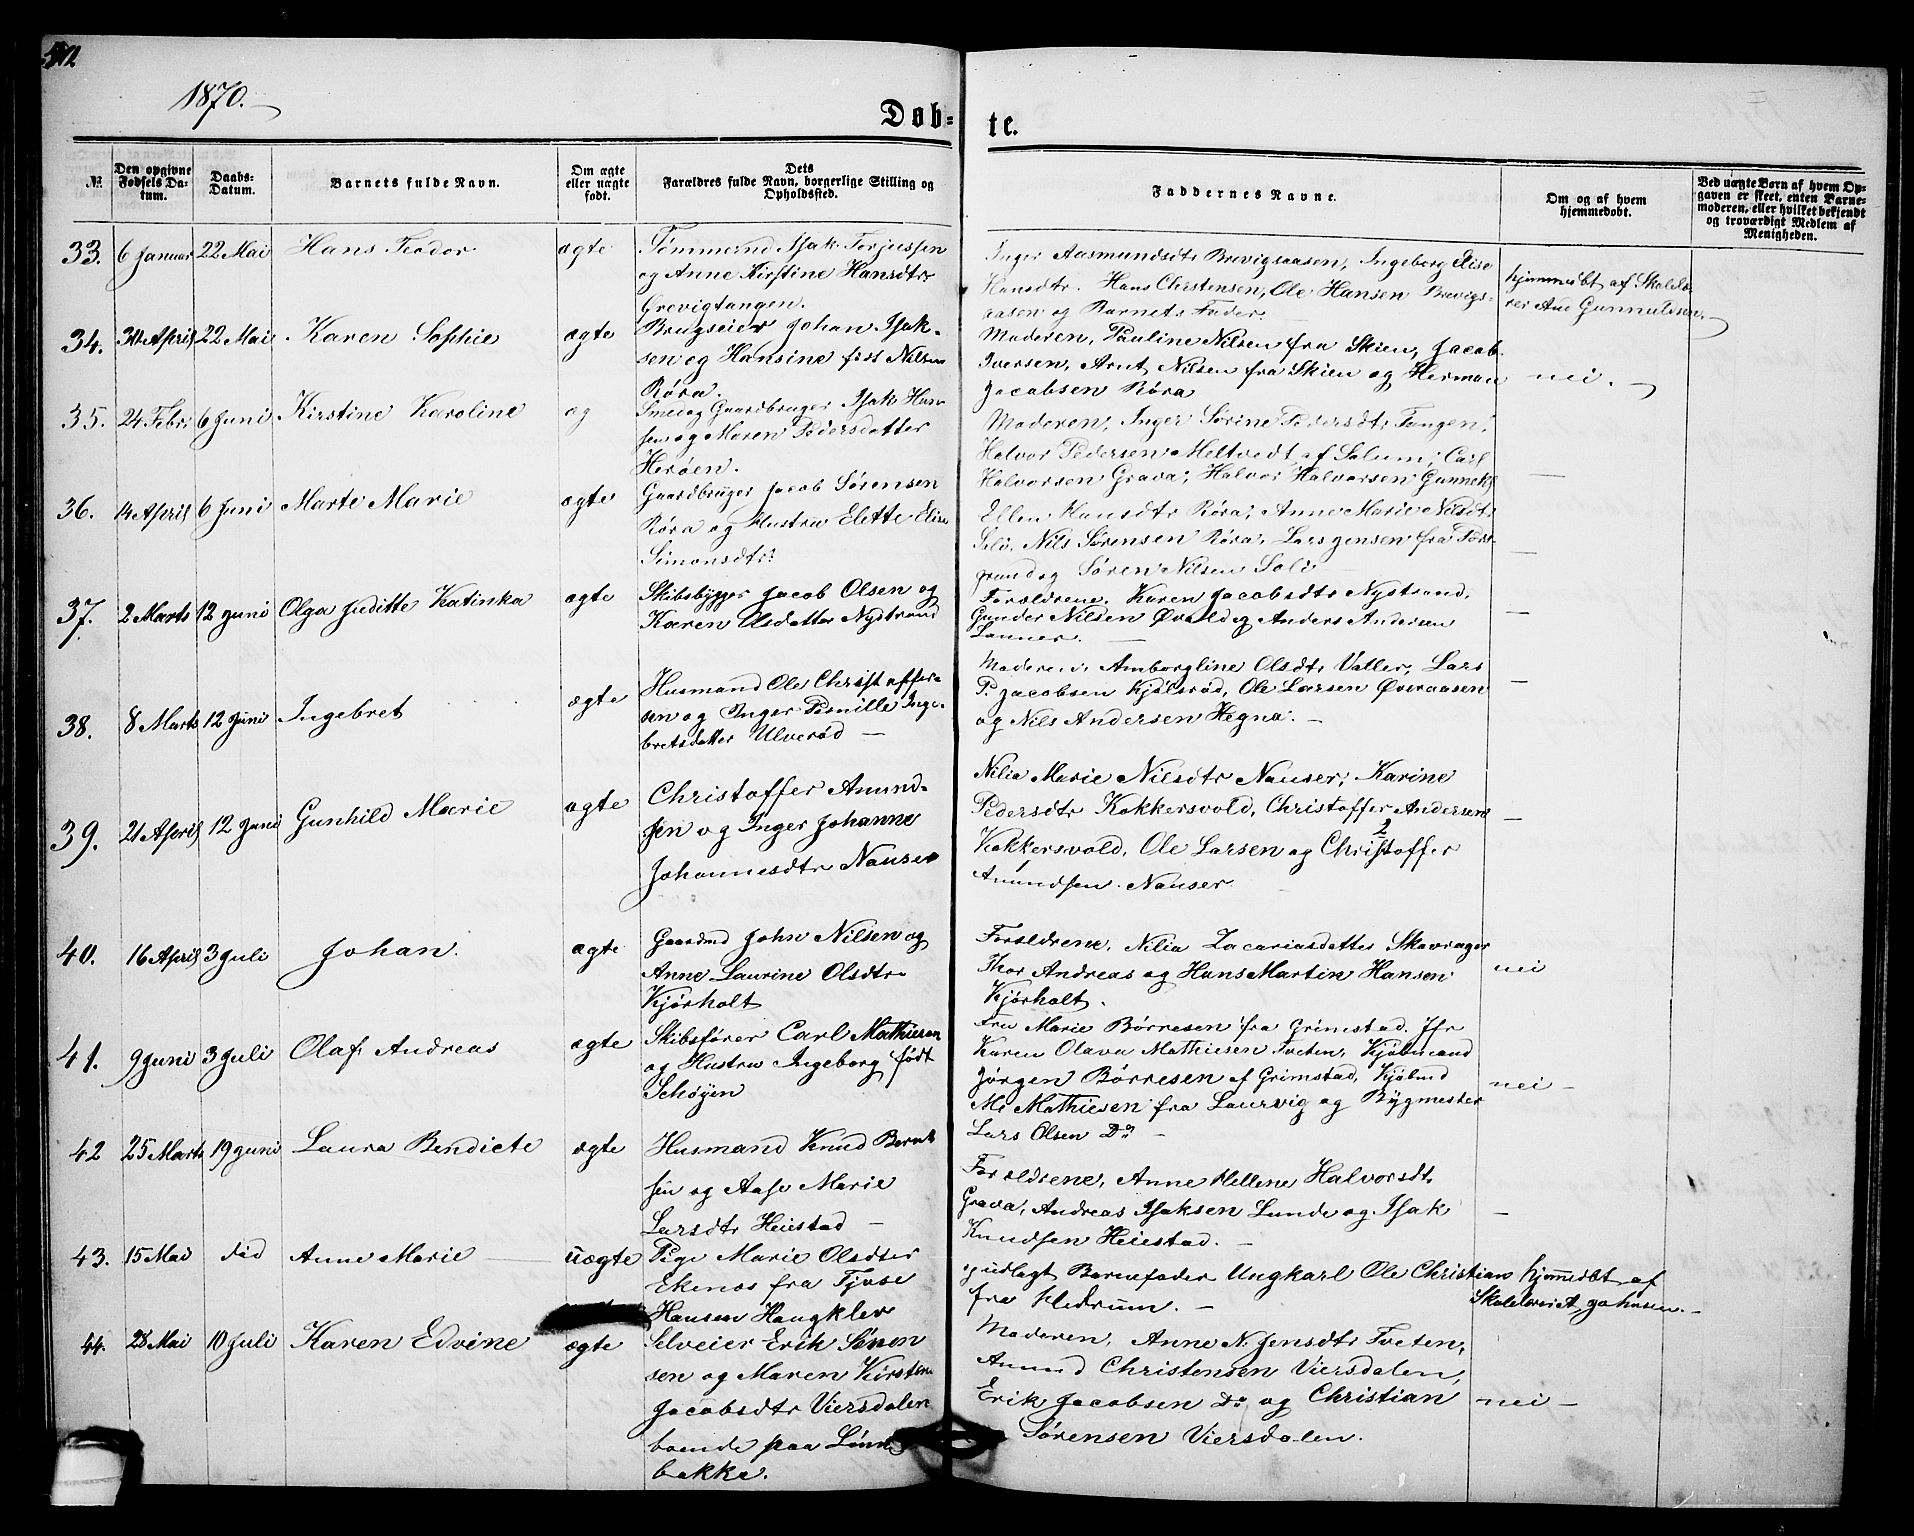 1870.
Døb-
te.
№
Den opgivne Fødsels Da-tum.
Daabs-Datum.
Barnets fulde Navn.
Om ægte eller uægte født.
Dets Forældres fulde Navn, borgerlige Stilling og Opholdssted.
Faddernes Navne.
Om og af hvem hjemmedøbt.
Ved uægte Børn af hvem Op-gaven er skeet, enten Barne-moderen, eller hvilket bekjendt og troværdigt Medlem af Menigheden.
33. 6 Januar 22 Mai Hans Teodor ægte
Tømmermd Isak Torjussen
og Anne Kirstine Hansdtr
Grevigtangen.
Inger Aasmundsdtr Brevigsaasen, Ingeborg Elise
Hansdtr. Hans Christensen, Ole Hansen Brevigs-
aasen og Barnets Fader.
hjemmedbt af Skolelæ-
rer Ane Gunnuldsen.
34. 30 April 22 Mai Karen Sophie ægte
Brugseier Johan Isak-
sen og Hansine født Nilsen
Røra.
Moderen, Pauline Nilsen fra Skien, Jacob
Iversen, Arnt Nilsen fra Skien og Herman
Jacobsen Røra
nei.
35. 24 Febr 6 Juni Kirstine Karoline æg
Smed og Gaardbruger Isak Han-
sen og Maren Pedersdatter
Herøen.
Moderen, Inger Sørine Pedersdtr Tangen,
Halvor Pedersen Meltvedt af Solum; Carl
Halvorsen Grava; Halvor Halvorsen Gunnekl
—
36. 14 April 6 Juni Marte Marie ægte
Gaardbruger Jacob Sørensen
Røra og Hustru Elette Elise
Simonsdtr.
Ellen Hansdtr Røra; Anne Marie Nilsdtr
Soli. Nils Sørensen Røra, Lars Jensen fra Pors-
grund og Søren Nilsen Soli
—
37. 2 Marts 12 Juni Olga Juditte Katinka ægte
Skibsbygger Jacob Olsen og
Karen Olsdatter Nystrand
Forældrene. Karen Jacobsdtr Nystrand,
Gunder Nilsen Øvald og Anders Andersen
Lanner.
—
38. 8 Marts 12 Juni Ingebret ægte
Husmand Ole Christoffer-
sen og Inger Pernille Inge-
bretsdatter Ulverød —
Moderen, Amborgline Olsdtr Valler, Lars
P. Jacobsen Kjølsrød, Ole Larsen Øveraasen
og Nils Andersen Hegna. —
—
39. 21 April 12 Juni Gunhild Marie ægte
Christoffer Amund-
sen og Inger Johanne
Johannesdtr Nauser
Nilia Marie Nilsdtr Nauser, Karine
Pedersdtr Kokkersvold, Christoffer Andersen
Kokkersvold, Ole Larsen og Christoffer
Amundsen Nauser.
—
40. 16 April 3 Juli Johan. ægte
Gaardmd John Nilsen og
Anne Laurine Olsdtr
Kjørholt
Forældrene, Nilia Zacariasdatter Skavrager
Thor Andreas og Hans Martin Hansen
Kjørholt.
nei
41. 9 Juni 3 Juli Olaf Andreas ægte
Skibsfører Carl Mathiesen
og Hustru Ingeborg født
Schøyen
Fru Marie Børresen fra Grimstad. Jfr
Karen Olava Mathiesen Tveten, Kjøbmand
Jørgen Børresen af Grimstad, Kjøbmd
M. Mathiesen fra Laurvig og Bygmester
Lars Olsen Do —
nei —
42 25 Marts 19 Juni Laura Bendicte ægte
Husmand Knud Bernt
sen og Aase Marie
Larsdtr Heiestad —
Forældrene, Anne Hellene Halvorsdt.
Grava, Andreas Isaksen Lunde og Isak
Knudsen Heiestad. —
—
43. 15 Mai død Anne Marie — uægte
Pige Marie Olsdtter
Ekenes fra Tjøse
og udlagt Barnefader Ungkarl Ole Christian
Hansen Haugklev
fra Hedrum. —
hjemmedbt af
Skolelærer A Johnsen. —
44. 28 Mai 10 Juli Karen Edvine ægte
Selveier Erik Søren
sen og Maren Kirsten
Jacobsdtr Viersdalen
boende paa Lønne
bakke.
Moderen, Anne N. Jensdtr Tveten,
Amund Christensen Viersdalen,
Erik Jacobsen Do og Christian
Sørensen Viersdalen.
nei —